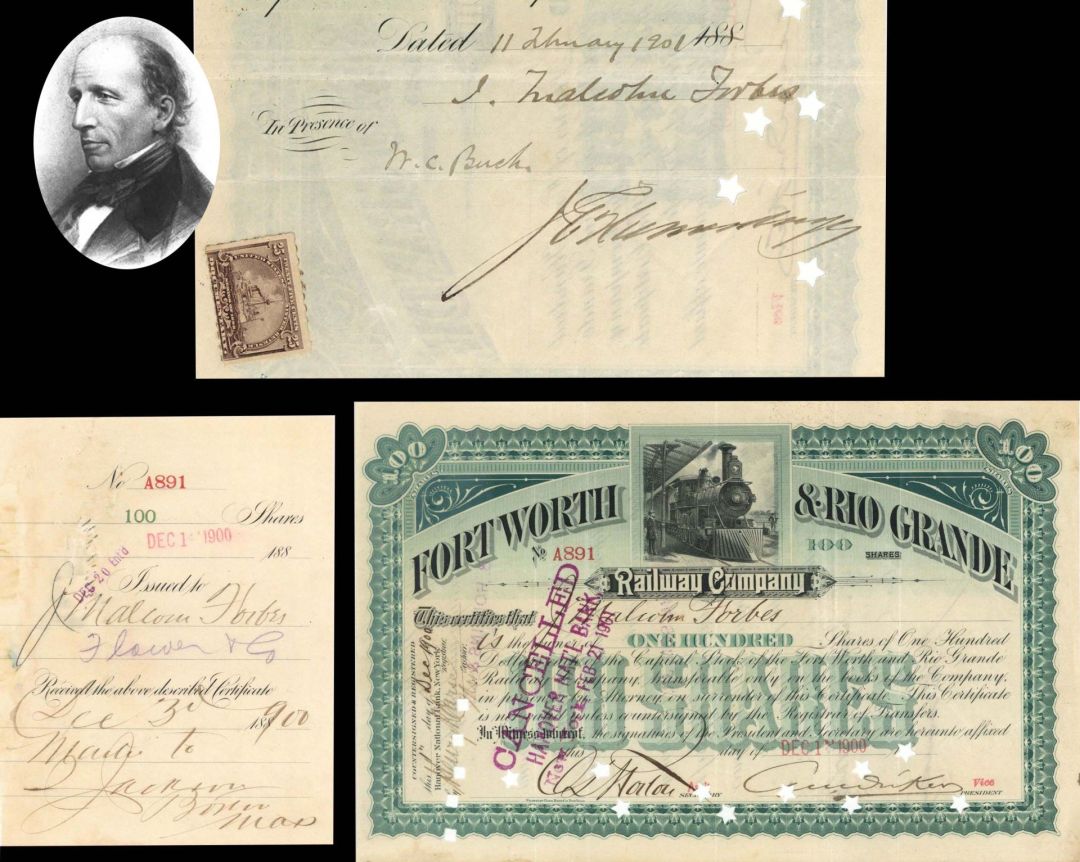 Dated 11 February 1901 188
J. Malcolm Forbes
In Presence of
W. C. Buck
No A891
100 Shares
DEC 1 1900 188
DEC 20 Entd
Issued to
J Malcom Forbes
Flower & Co
Received the above described Certificate
Dec 3d 188 900
Mail to
Jackson
100 SHARES
100 SHARES
FORT WORTH & RIO GRANDE
No A891
100 SHARES
Railway Company
This certifies that J Malcolm Forbes
is the owner of ONE HUNDRED Shares of One Hundred
Dollars each of the Capital Stock of the Fort Worth and Rio Grande
Railway Company, transferable only on the books of the Company,
in person or by Attorney on surrender of this Certificate. This Certificate
is not valid unless countersigned by the Registrar of Transfers.
In Witness Whereof, the signatures of the President and Secretary are hereunto affixed
this day of DEC 1 1900
SECRETARY
Vice
PRESIDENT
COUNTERSIGNED & REGISTERED
this day of Dec 1900
Hanover National Bank, New York
CANCELLED
HANOVER NAT'L BANK
NEW YORK FEB 21 1901